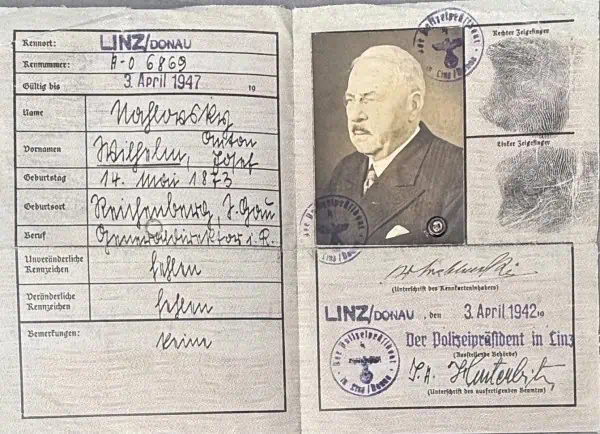 Kennort: LINZ/DONAU
Kennummer: A-0 6869
Gültig bis 3. April 1947 19
Name Nahlovsky
Vornamen Wilhelm, Anton
Josef
Geburtstag 14. Mai 1873
Geburtsort Reichenberg, S. Gau
Beruf Generaldirektor i. R.
Unveränderliche
Kennzeichen fehlen
Veränderliche
Kennzeichen fehlen
Bemerkungen: keine
Der Polizeipräsident
in Linz/Donau
Der Polizeipräsident
in Linz/Donau
Rechter Zeigefinger
Linker Zeigefinger
(Unterschrift des Kennkarteninhabers)
LINZ/DONAU, den 3. April 1942 19
Der Polizeipräsident in Linz
(Ausstellende Behörde)
Der Polizeipräsident
in Linz/Donau
(Unterschrift des ausfertigenden Beamten)